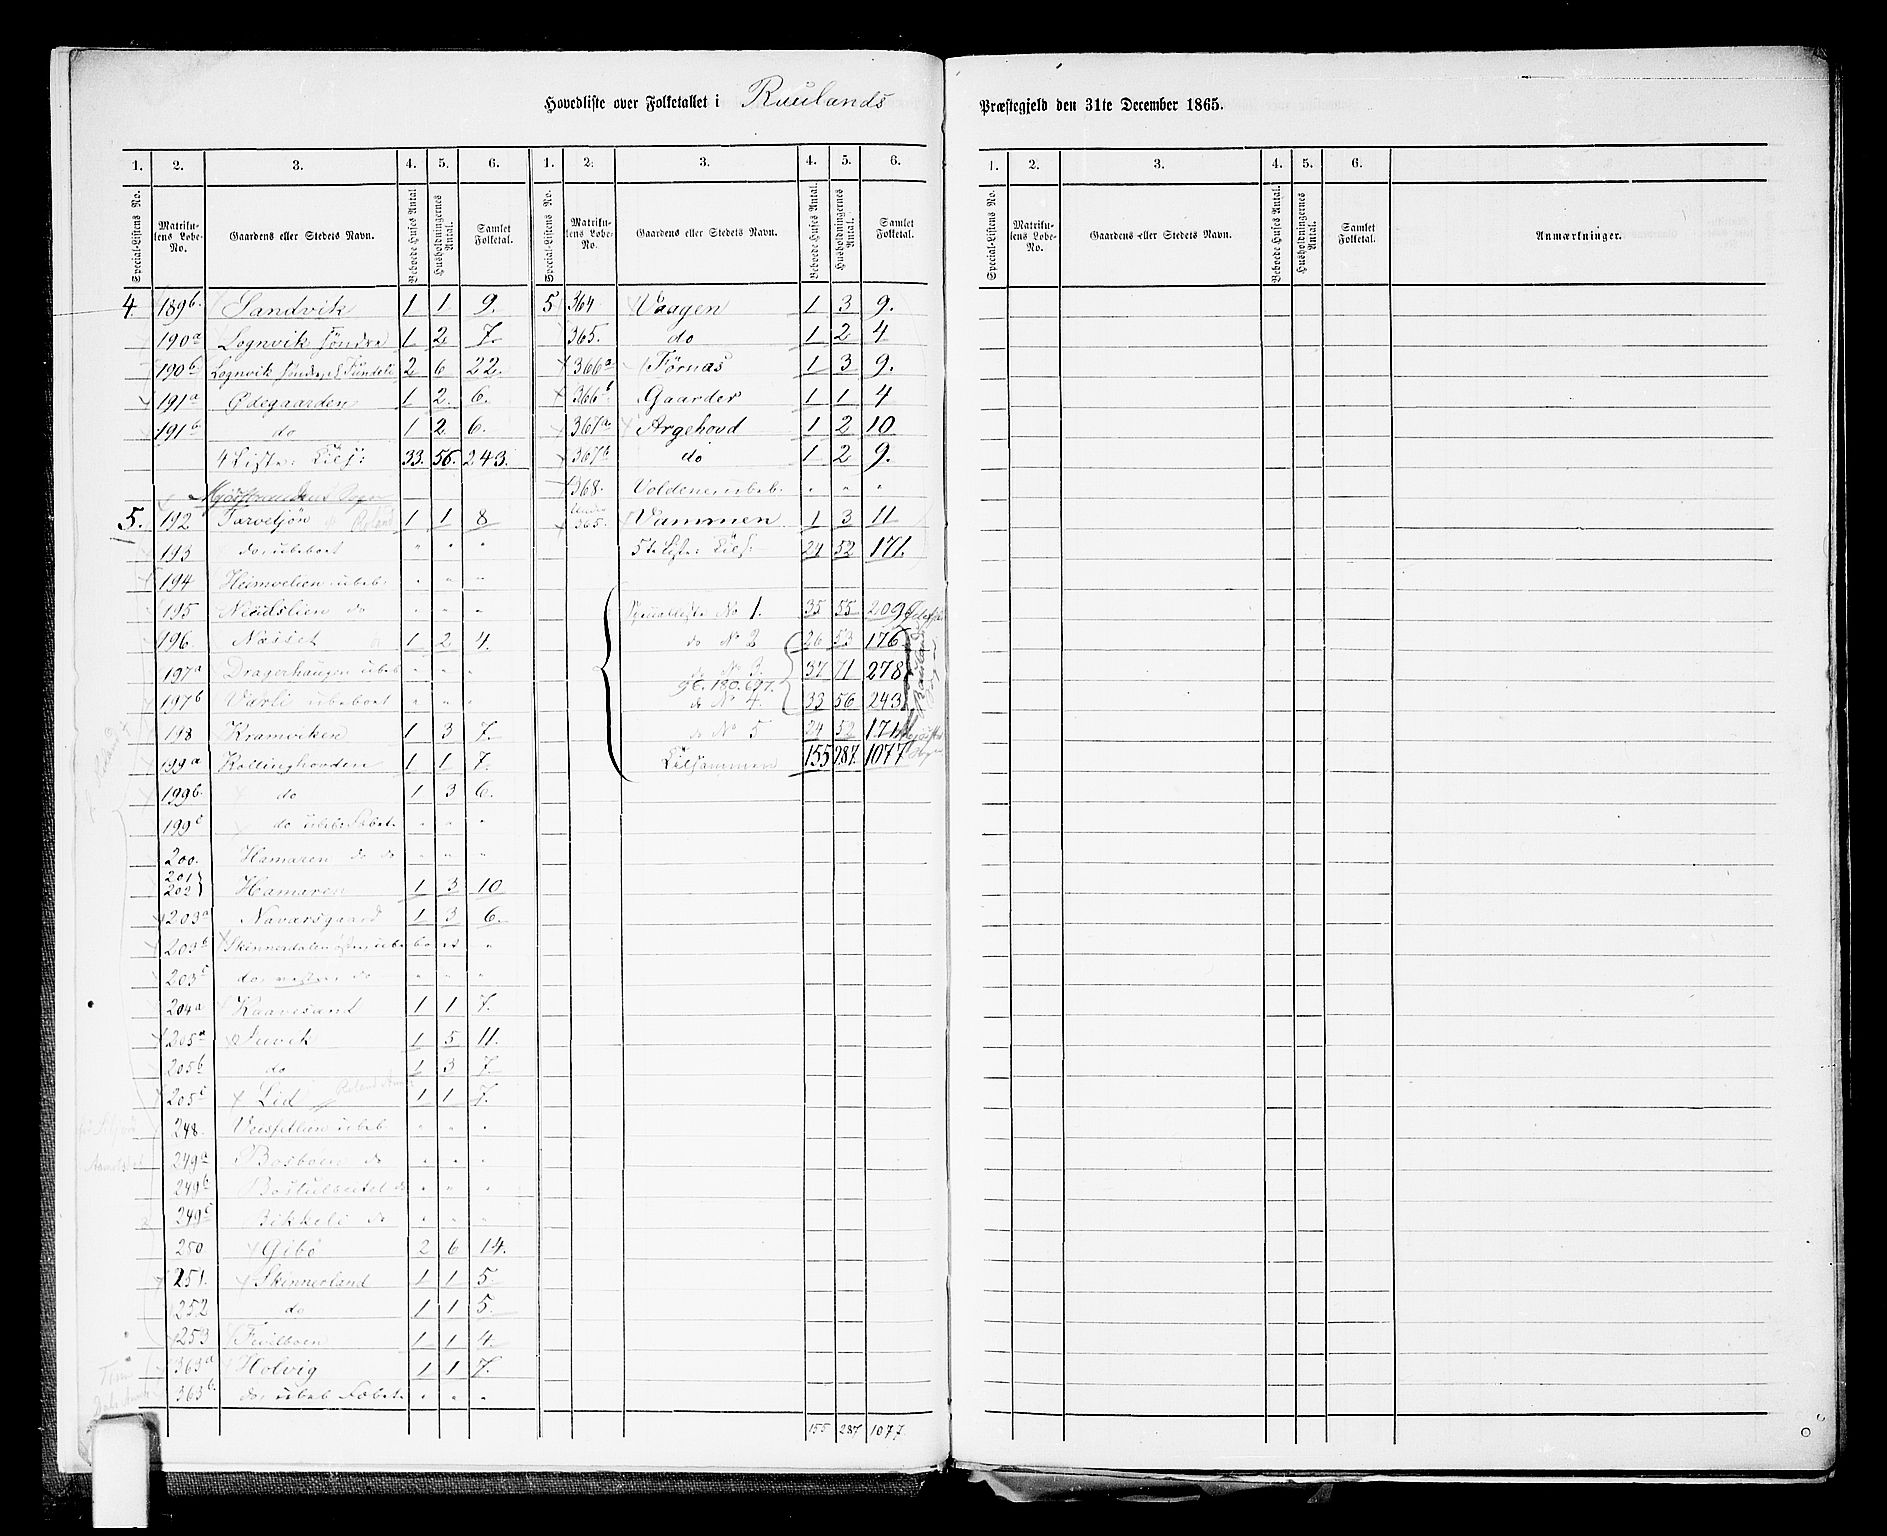 Hovedliste over Folketallet i Raulands Præstegjeld den 31te December 1865.
1. 2. 3. 4. 5. 6. 1. 2. 3. 4. 5. 6.
Special-Listens No. Matrikulens Løbe-No. Gaardens eller Stedets Navn. Beboede Huses Antal. Husholdningernes Antal. Samlet Folketal. Special-Listens No. Matrikulens Løbe-No. Gaardens eller Stedets Navn. Beboede Huses Antal. Husholdningernes Antal. Samlet Folketal.
4. 189b. Sandvik 1 1 9.
190a Lognvik søndre 1 2. 7.
190b Lognvik søndre, 2 6 22.
191a Ødegaarden 1 2. 6.
191b do 1 2. 6.
4 Liste: Tils: 33. 56. 243.
Mjösstrandens Sogn
5. 192 Torvetjøn 1 1 8
193 do, ubeboet " " "
194 Heimvelien ubeb: " " "
195 do " " "
196. Næsset 1 2 4.
197a Dragerhaugen ubeb " " "
197b Varli ubeboet " " "
198 Kramviken 1 3 7.
199a Kollinghovden 1 1 7.
199b. do 1 3 6.
199c do ubeb: " " "
200. Hamaren do do " " "
201 202} Hamaren 1 3 10
203a Navarsgaard 1 3 6.
203b Skinnerdalen østre, ubeboet "
203c do, vestre do " " "
204a Kaavesand 1 1 7.
205a Survik 1 5 11.
205b do 1 3 7.
205c Lid 1 1 7.
248. ubeb " " "
249a Bosbøen do " " "
249b do " " "
249c Bikkeli do " " "
250 Gibø 2 6 14.
251. Skinnerland 1 1 5.
252 do 1 1 5.
253 1 1 4.
363a Holvig 1 1 7.
363b. do, ubeb " " "
5 364 Vaagen 1 3 9.
365. do 1 2 4
366a Førnæs 1 3 9.
366b Gaarder 1 1 4
367a Argehovd 1 2 10
367b do 1 2 9.
368. Voldene, ubeb. " " "
Under 365. Vammen 1 3 11
5te Liste: Tils: 24 52 171.
Specialliste No 1. 35 55 209
do No 2 26 53 176
do No 3. 37 71 278
96. 180. 697.
do No 4. 33 56 243
do No 5 24 52 171
Tilsammen 155 287. 1077
155 287 1077.
1. 2. 3. 4. 5. 6.
Special-Listens No. Matrikulens Løbe-No. Gaardens eller Stedets Navn. Beboede Huses Antal. Husholdningernes Antal. Samlet Folketal. Anmærkninger.